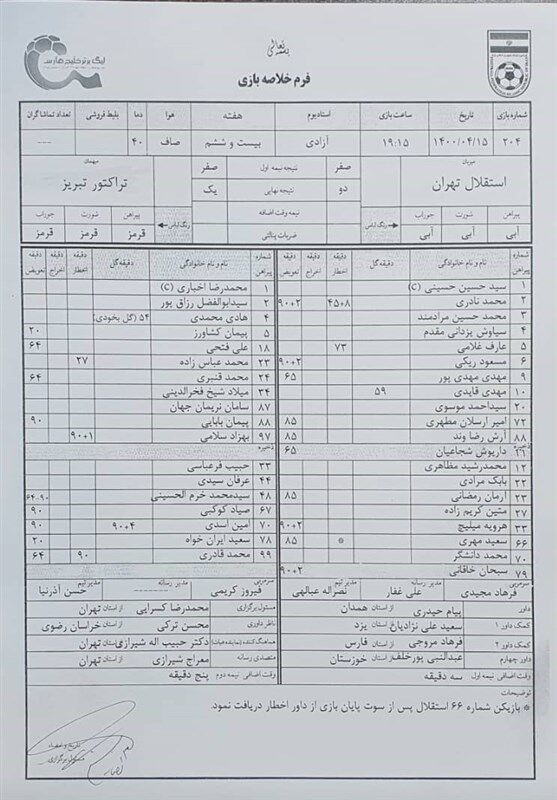 بسمه تعالی
لیگ برتر خلیج فارس
فرم خلاصه بازی
شماره بازی تاریخ ساعت بازی استادیوم هفته هوا دما بلیط فروشی تعداد تماشاگران
۲۰۴ ۱۴۰۰/۰۴/۱۵ ۱۹:۱۵ آزادی بیست و ششم صاف ۴۰ ---
میزبان استقلال تهران صفر نتیجه نیمه اول صفر میهمان تراکتور تبریز
دو نتیجه نهایی یک
نیمه وقت اضافه
ضربات پنالتی
پیراهن شورت جوراب رنگ لباس رنگ لباس پیراهن شورت جوراب
آبی آبی آبی قرمز قرمز قرمز
شماره پیراهن نام و نام خانوادگی دقیقه گل دقیقه اخطار دقیقه اخراج دقیقه تعویض
۱ سید حسین حسینی (C)
۲ محمد نادری ۴۵+۸ ۹۰+۲
۳ محمد حسین مرادمند
۴ سیاوش یزدانی مقدم
۵ عارف غلامی ۷۳
۶ مسعود ریگی ۹۰+۲
۹ مهدی مهدی پور ۶۵
۱۰ مهدی قایدی ۵۹
۲۰ سیداحمد موسوی
۷۲ امیر ارسلان مطهری ۸۵
۸۸ آرش رضا وند ۸۵
ذخیره
۲۱ داریوش شجاعیان ۶۵
۱۲ محمدرشید مظاهری
۲۲ بابک مرادی
۲۳ آرمان رمضانی ۸۵
۲۷ متین کریم زاده
۳۳ هرویه میلیچ ۹۰+۲
۶۶ سعید مهری * ۸۵
۷۰ محمد دانشگر
۷۹ سبحان خاقانی ۹۰+۲
شماره پیراهن نام و نام خانوادگی دقیقه گل دقیقه اخطار دقیقه اخراج دقیقه تعویض
۱ محمدرضا اخباری (C)
۲ سیدابوالفضل رزاق پور
۴ هادی محمدی ۵۴ (گل بخودی)
۵ پیمان کشاورز ۲۰
۱۸ علی فتحی ۶۴
۲۳ محمد عباس زاده ۲۷
۲۴ محمد قنبری ۶۴
۳۴ میلاد شیخ فخرالدینی
۸۷ سامان نریمان جهان
۸۸ پیمان بابایی ۹۰
۹۷ بهزاد سلامی ۹۰+۱
ذخیره
۳۳ حبیب فرعباسی
۴۴ عرفان سیدی
۴۸ سیدمحمد خرم الحسینی ۶۴-۹۰
۶۷ صیاد کوکبی ۹۰
۷۰ امین اسدی ۹۰+۴ ۹۰
۷۸ سعید ایران خواه ۲۰
۹۹ محمد قادری ۹۰ ۶۴
سرمربی فرهاد مجیدی مدیر رسانه علی غفار مدیر تیم نصراله عبدالهی
سرمربی فیروز کریمی مدیر رسانه --- مدیر تیم حسن آذرنیا
داور پیام حیدری از استان همدان مسئول برگزاری محمدرضا کسرایی از استان تهران
کمک داور ۱ سعید علی نژادیان از استان یزد ناظر داوری محسن ترکی از استان خراسان رضوی
کمک داور ۲ فرهاد مروجی از استان فارس هماهنگ کننده (نماینده هیات) دکتر حبیب اله شیرازی از استان تهران
داور چهارم عبدالنبی پورخلف از استان خوزستان متصدی رسانه معراج شیرازی از استان تهران
وقت اضافی نیمه اول سه دقیقه وقت اضافی نیمه دوم پنج دقیقه
توضیحات
* بازیکن شماره ۶۶ استقلال پس از سوت پایان بازی از داور اخطار دریافت نمود.
تاریخ و امضاء
مسئول برگزاری